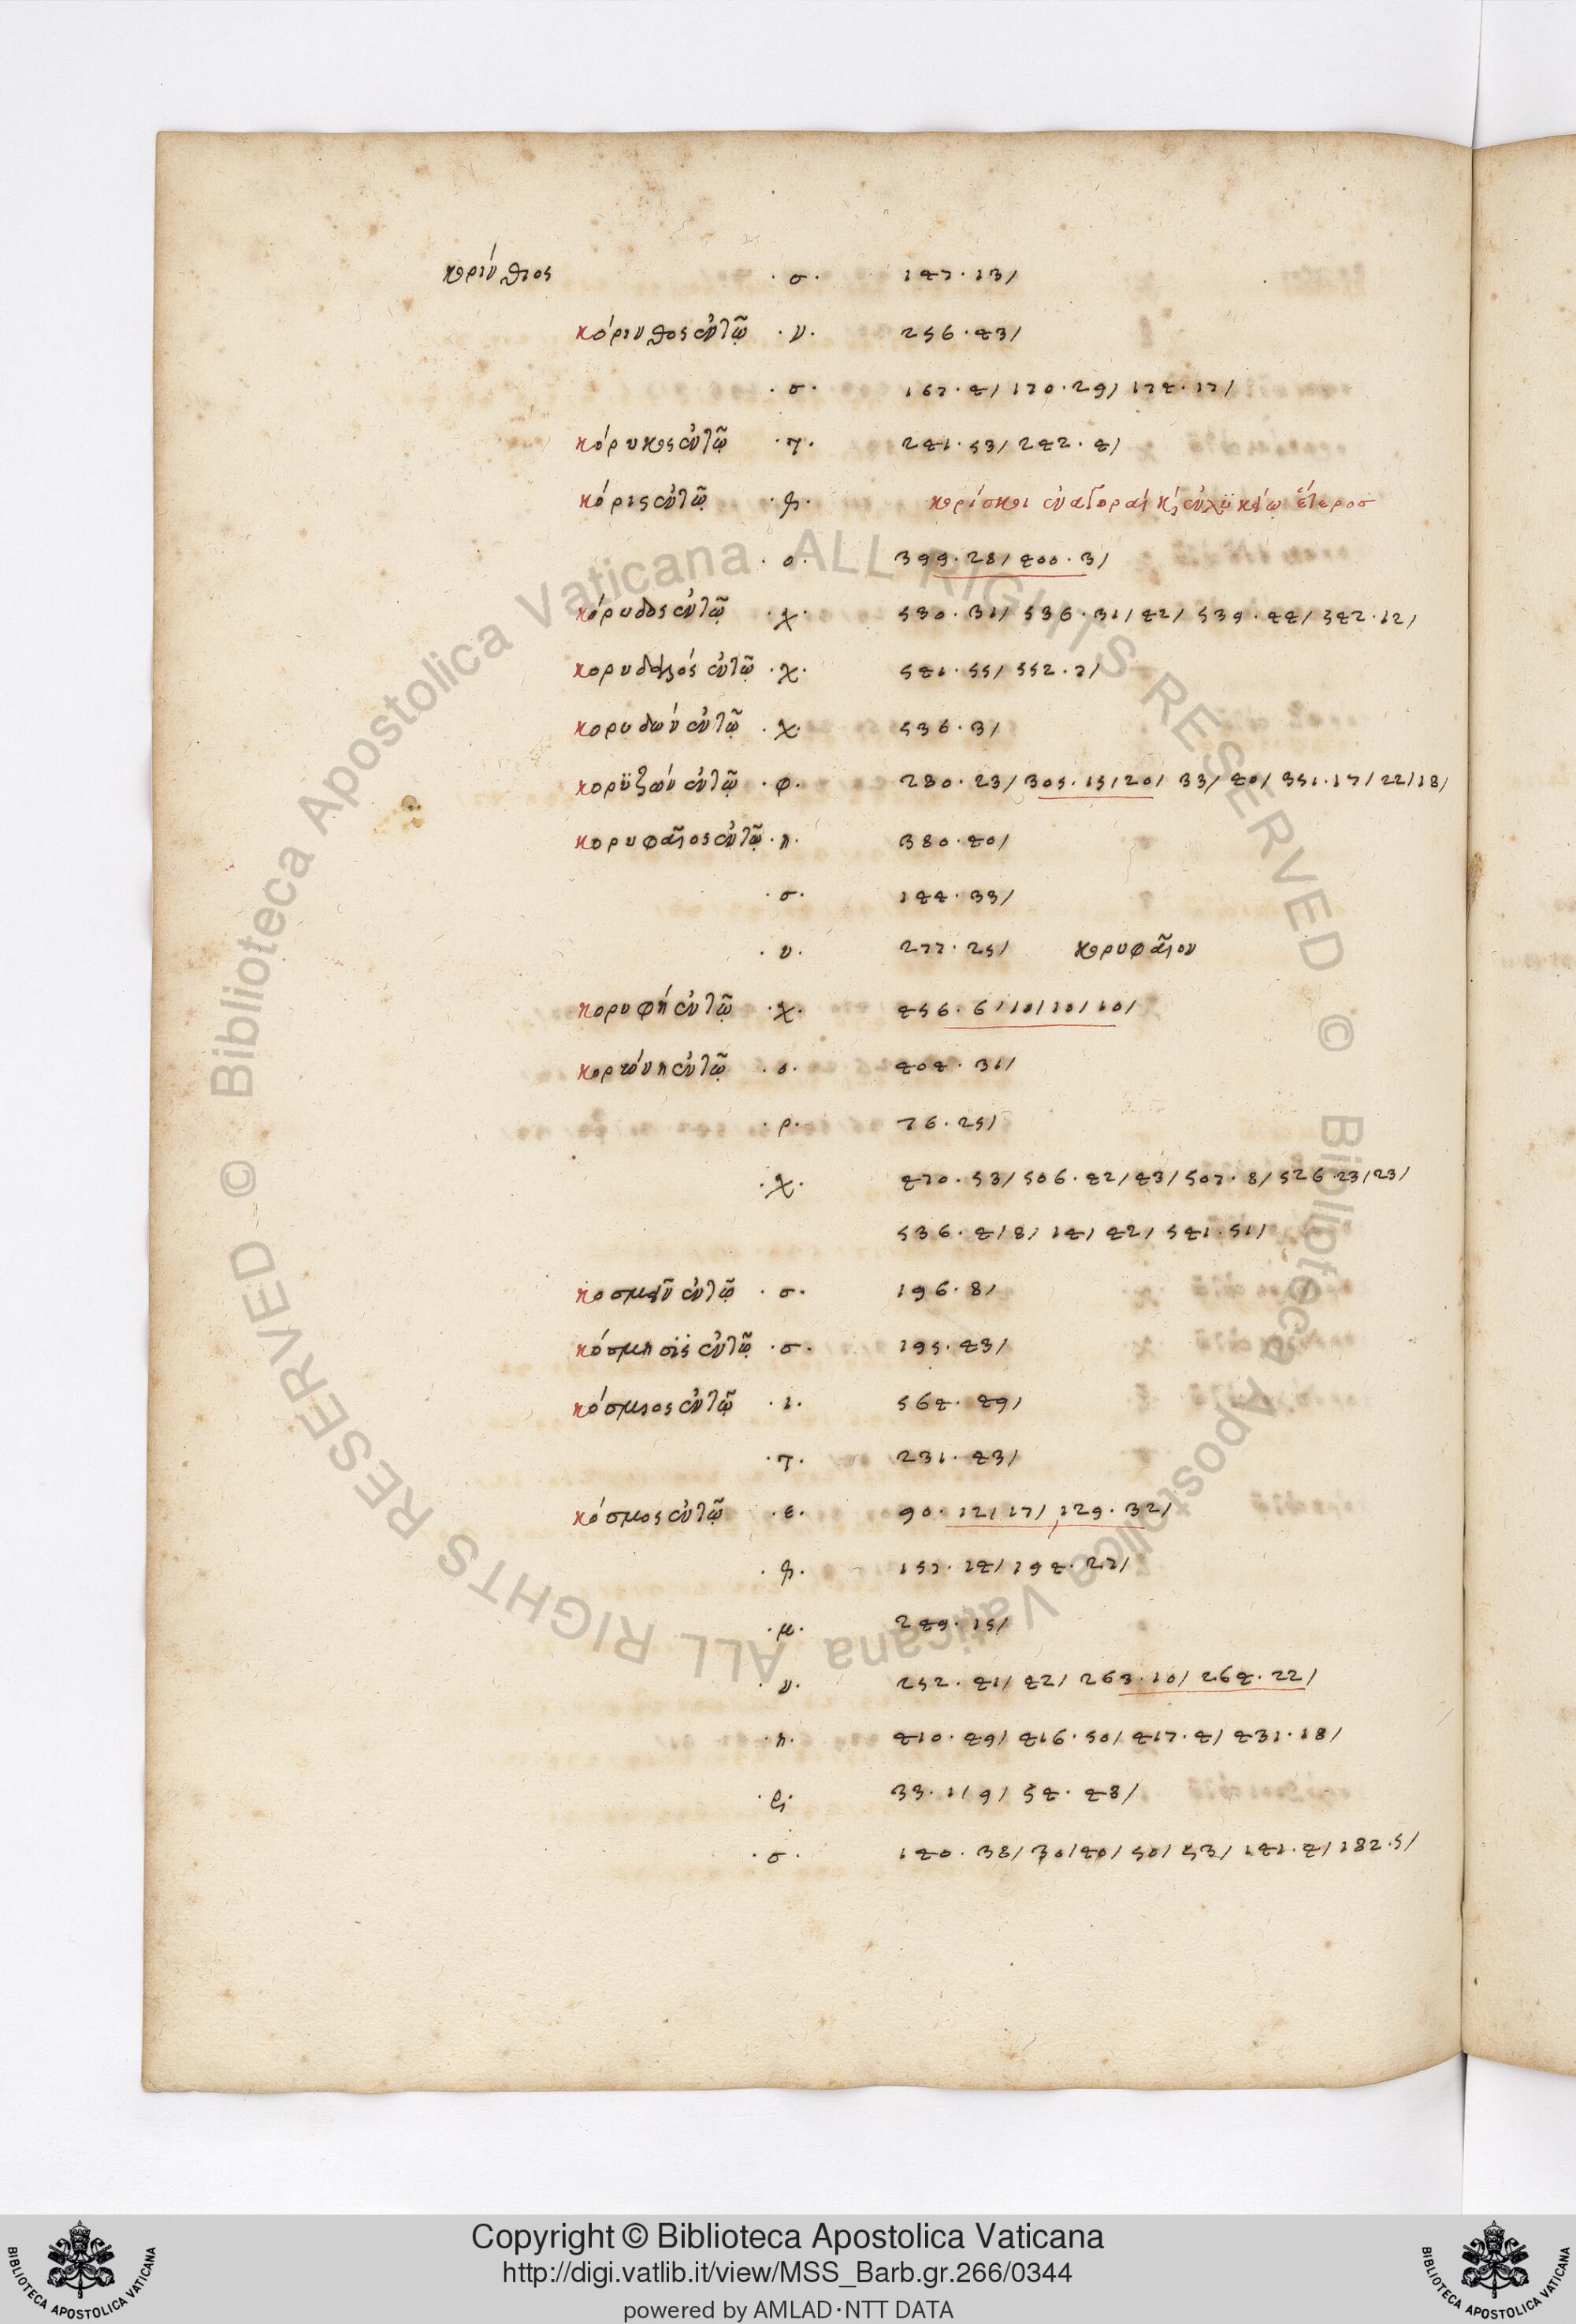 κορίνθιος ·σ· 147·13/
κόρινθος ἐν τῷ ·ν· 256·43/
·σ· 167·4/ 170·29/ 174·17/
κόρυκος ἐν τῷ ·τ· 241·53/ 242·4/
κόρις ἐν τῷ
·ο· 399·28/ 400·3/
κόρυδος ἐν τῷ ·χ· 530·31/ 536·31/42/ 539·44/ 542·12/
κορυδαλός ἐν τῷ ·χ· 541·55/ 552·7/
κορυδών ἐν τῷ ·χ· 536·3/
κορύζων ἐν τῷ ·φ· 280·23/ 305·15/20/ 33/ 40/ 351·17/22/18/
κορυφαῖος ἐν τῷ ·π· 380·40/
·σ· 144·33/
·υ· 277·25/ κορυφαῖον
κορυφή ἐν τῷ ·χ· 456·6/10/10/10/
κορώνη ἐν τῷ ·ο· 404·31/
·ρ· 76·25/
·χ· 470·53/ 506·42/43/ 507·8/ 526·23/23/
536·4/8/ 14/ 42/ 541·51/
κοσμεῖν ἐν τῷ ·σ· 196·8/
κόσμησις ἐν τῷ ·σ· 195·43/
κόσμιος ἐν τῷ ·ι· 564·49/
·τ· 231·43/
κόσμος ἐν τῷ ·ε· 90·12/17/ 129·32/
157·14/ 194·27/
·μ· 249·15/
·ν· 252·41/42/ 263·10/ 264·22/
·π· 410·49/ 416·50/ 417·4/ 431·18/
33·1/9/ 54·48/
·σ· 140·38/30/40/50/53/ 141·4/ 182·5/
© Biblioteca Apostolica Vaticana ALL RIGHTS RESERVED
© Biblioteca Apostolica Vaticana ALL RIGHTS RESERVED
Copyright © Biblioteca Apostolica Vaticana
http://digi.vatlib.it/view/MSS_Barb.gr.266/0344
powered by AMLAD·NTT DATA
BIBLIOTECA APOSTOLICA VATICANA
BIBLIOTECA APOSTOLICA VATICANA